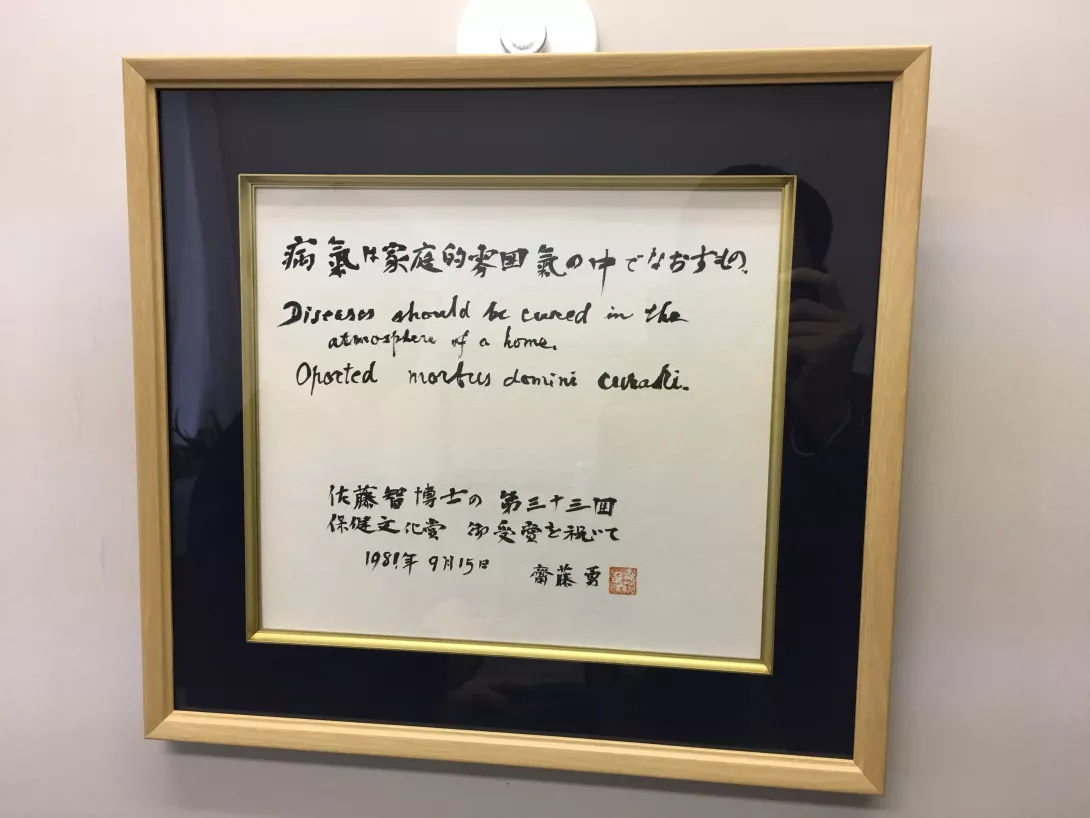 病氣は家庭的雰囲氣の中でなおすもの。
Diseases should be cured in the
atmosphere of a home.
Oported morbus domini curati.
佐藤智博士の 第三十三回
保健文化賞 御受賞を祝いて
1981年 9月15日 齋藤 勇